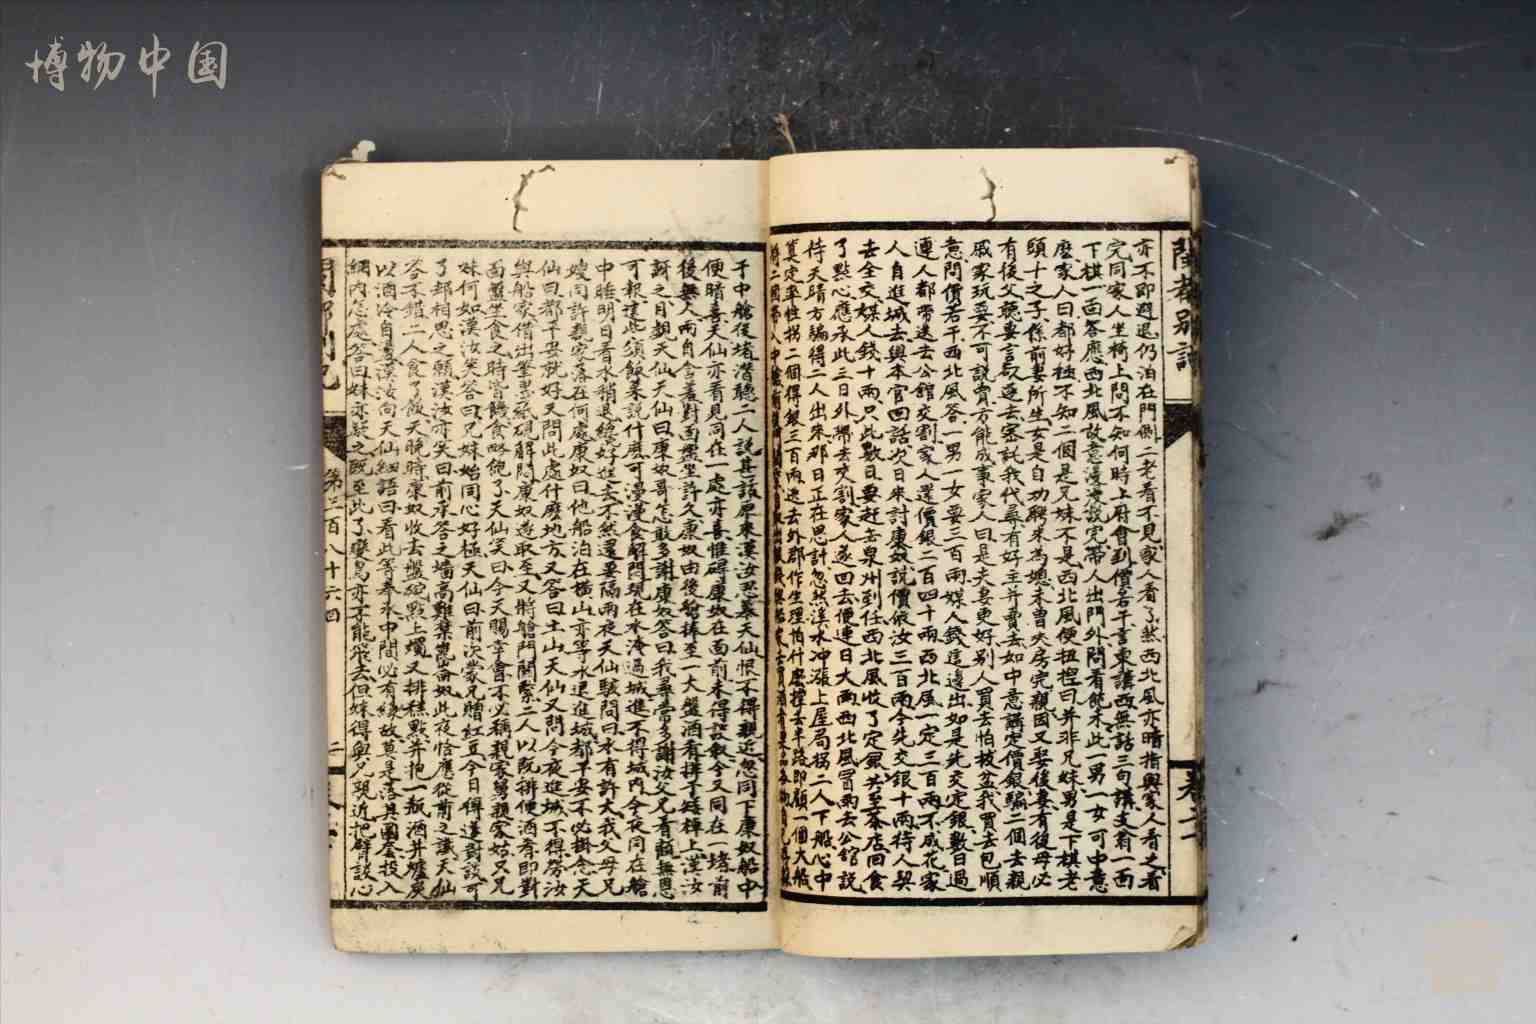 博物中国
閩都别記
亦不即避退仍泊在門側二老看不見家人看了然西北風亦暗指與家人看之看
完同家人坐椅上問不知何時上府會到價若干言東講西無話三句講支翁一西
下棋一面答應西北風故意漫漫説完帶人出門外問看能未此一男一女可中意
麽家人曰都好極不知二個是兄妹不是西北風便扭捏曰并非兄妹男是下棋老
頭十之子係前妻所生女是自幼聘来為媳未曾夫房完親因又娶後妻有後母必
有後父聽妻言欲逐去密託我代尋有好主并賣去如中意講定價銀騙二個去親
戚家玩耍不可説賣方能成事家人曰是夫妻更好别人買去怕拔盆我買去包順
意問價若干西北風答一男一女要三百兩媒人錢這邊出如是先交定銀數日過
連人都帶送去公舘交割家人還價銀二百四十兩西北風一定三百兩不成花家
人自進城去與本官回話次日来討康奴説價依汝三百兩今先交銀十兩待人契
去全交媒人錢十兩只此數日要赶去泉州到任西北風收了定銀共至茶店回食
了點心應承此三日外帶去交割家人遂回去便連日大雨西北風冒雨去公舘説
待天晴方騙得二人出来那日正在思計忽然溪水冲漲上屋局拐二人下船心中
算定率性拐二個得銀三百兩逃去外郡作生理怕什麽撑去半路即顧一個大船
卷二
于中艙後堵潛聽二人説甚話原来漢汝思慕天仙恨不得親近忽同下康奴船中
便暗喜天仙亦看見同在一處亦喜惟碍康奴在面前未得談叙今又同在一堵前
後無人兩自含羞對面盤坐許久康奴由後艙捧至一大盤酒肴排不矮棹上漢汝
訝之目覷天仙天仙曰康奴哥怎敢多謝康奴答曰我尋常多謝汝父兄看顧無恩
可報這些須飯菜説什麽可漫漫食解悶現在水淹過城進不得城内今夜同在艙
中睡明日看水稍退總好進去不然還要隔兩夜天仙駭問曰水有許大我父母兄
嫂同許親家落在何處康奴曰他船泊在横山亦等水退進城都平安不必掛念天
仙曰都平安就好又問此處什麽地方又答曰土山天仙又問今夜進城不得勞汝
與船家借出筆墨紙硯解悶康奴遊取至又將艙門関緊二人以既排便酒肴即對
面盤坐食之時皆饑食略飽了天仙笑曰今天賜幸會不必稱親家舅親家姑又兄
妹何如漢汝笑答曰兄妹始同心好極天仙曰前次蒙兄贈紅豆今日得逢對談可
了却相思之願漢汝亦笑曰前承答之墙高難禁鶯窗如此夜恰應從前之讖天仙
答不錯二人食了飯天晚時康奴收去盤碗點上燭又排糕點并抱一瓶酒并爐炭
以酒冷自煮漢汝向天仙細語曰看此等奉承中間必有緣故莫是落其圈套投入
網内怎處答曰妹亦疑之既至此了變鳥亦不能飛去但妹得與兄親近把臂談心
第二百八十六回
二